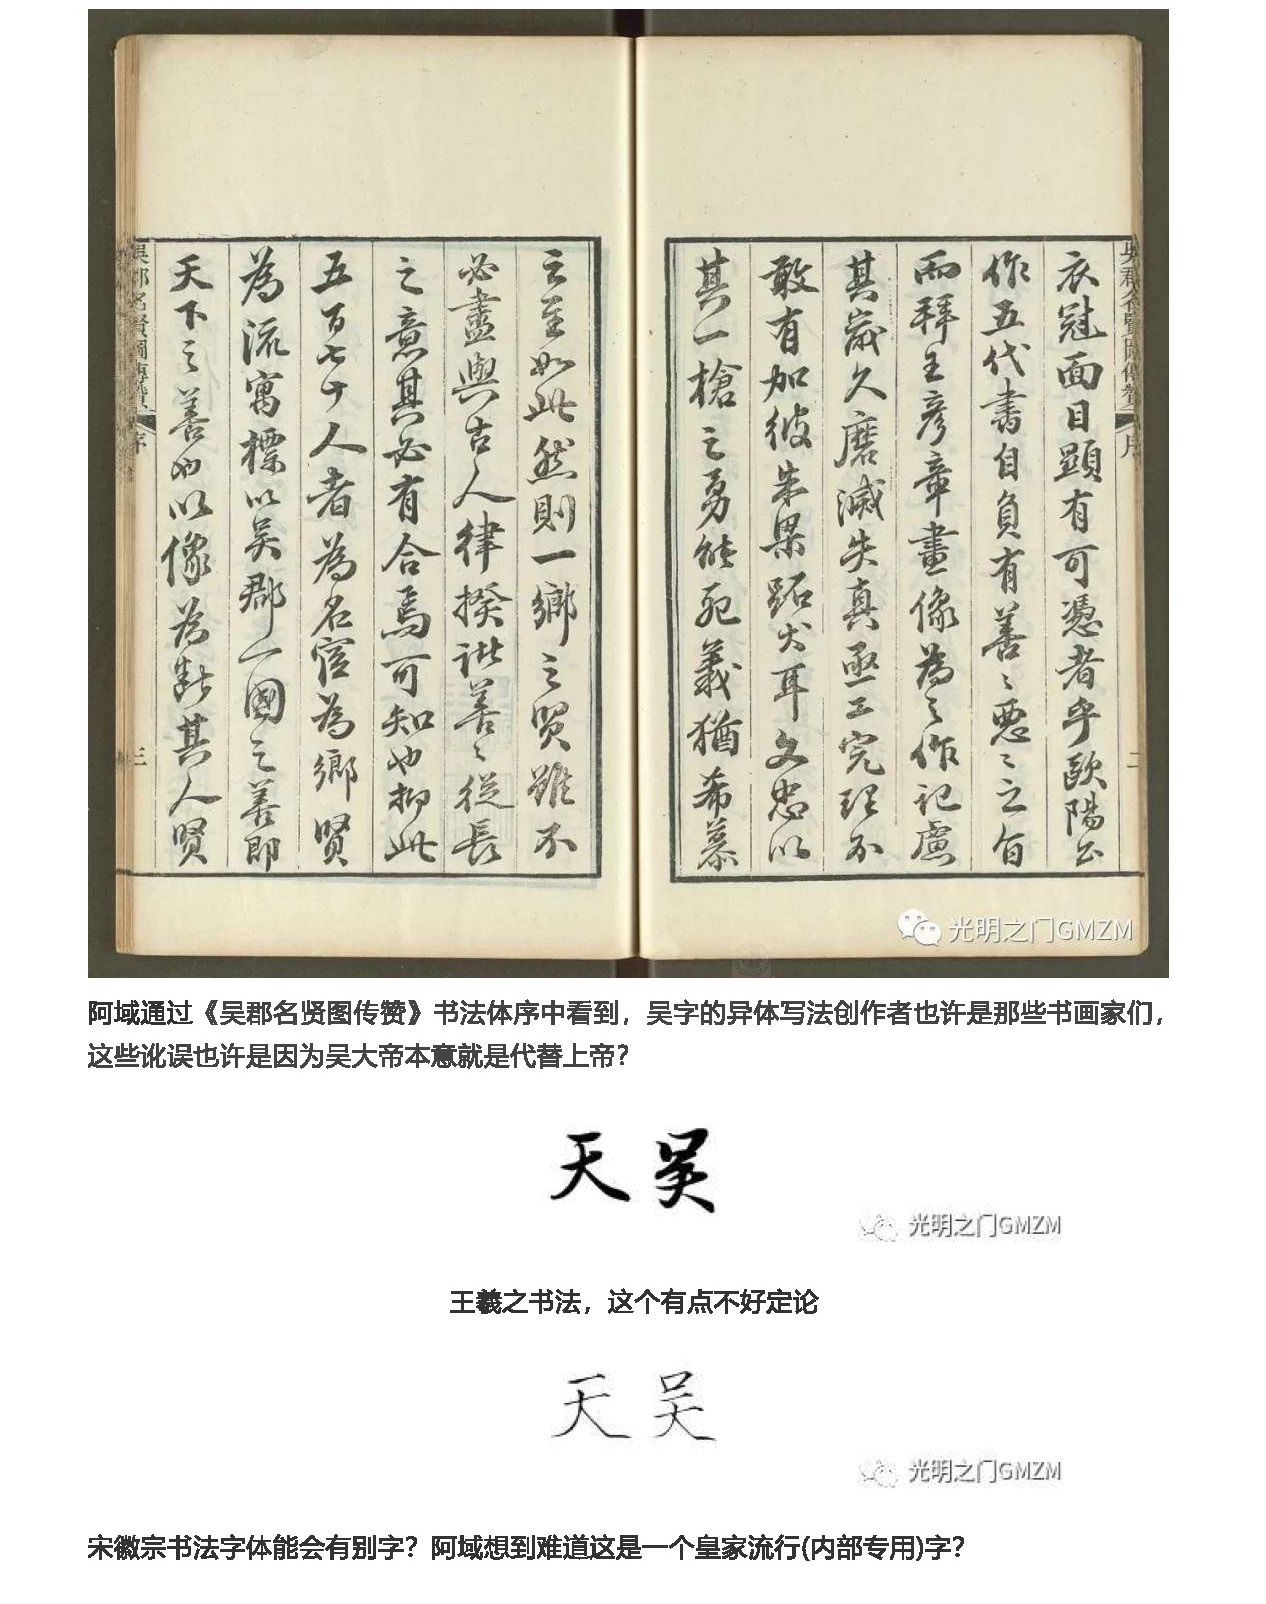 吴郡名賢圖傳贊 序
二
衣冠面目顯有可憑者乎歐陽公
作五代書自負有善善惡惡之旨
而拜王彥章畫像為之作記慮
其歲久磨滅失真亟工完理不
敢有加彼朱梁跖犬耳文忠以
其一槍之勇能死義猶希慕
之至如此然則一鄉之賢雖不
必盡與古人律揆諸善善從長
之意其必有合焉可知也抑此
五百七十人者為名宦為鄉賢
為流寓標以吴郡一國之善即
天下之善也以像為斷其人賢
吴郡名賢圖傳贊 序
三
光明之门GMZM
阿域通过《吴郡名贤图传赞》书法体序中看到，吴字的异体写法创作者也许是那些书画家们，
这些讹误也许是因为吴大帝本意就是代替上帝？
天吴
光明之门GMZM
王羲之书法，这个有点不好定论
天吴
光明之门GMZM
宋徽宗书法字体能会有别字？阿域想到难道这是一个皇家流行(内部专用)字？